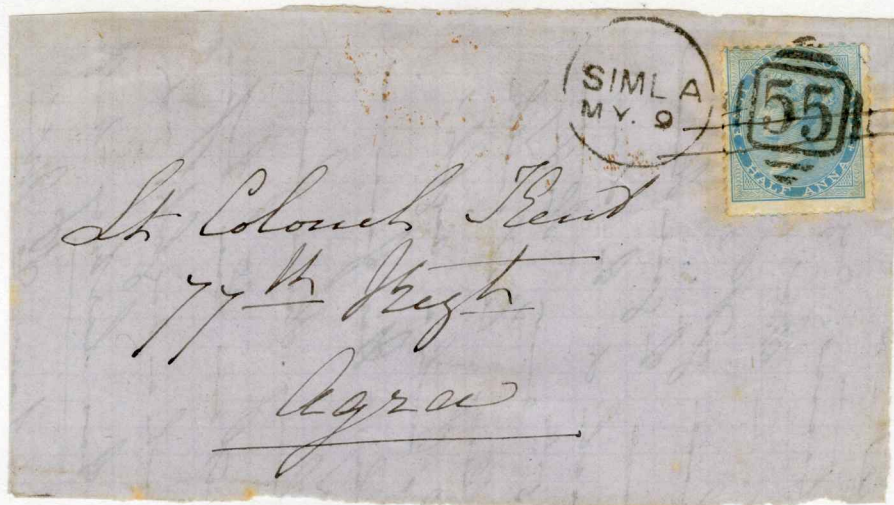 SIMLA
MY. 9
55
HALF ANNA
Lt Colonel Kent
77th Regt
Agra